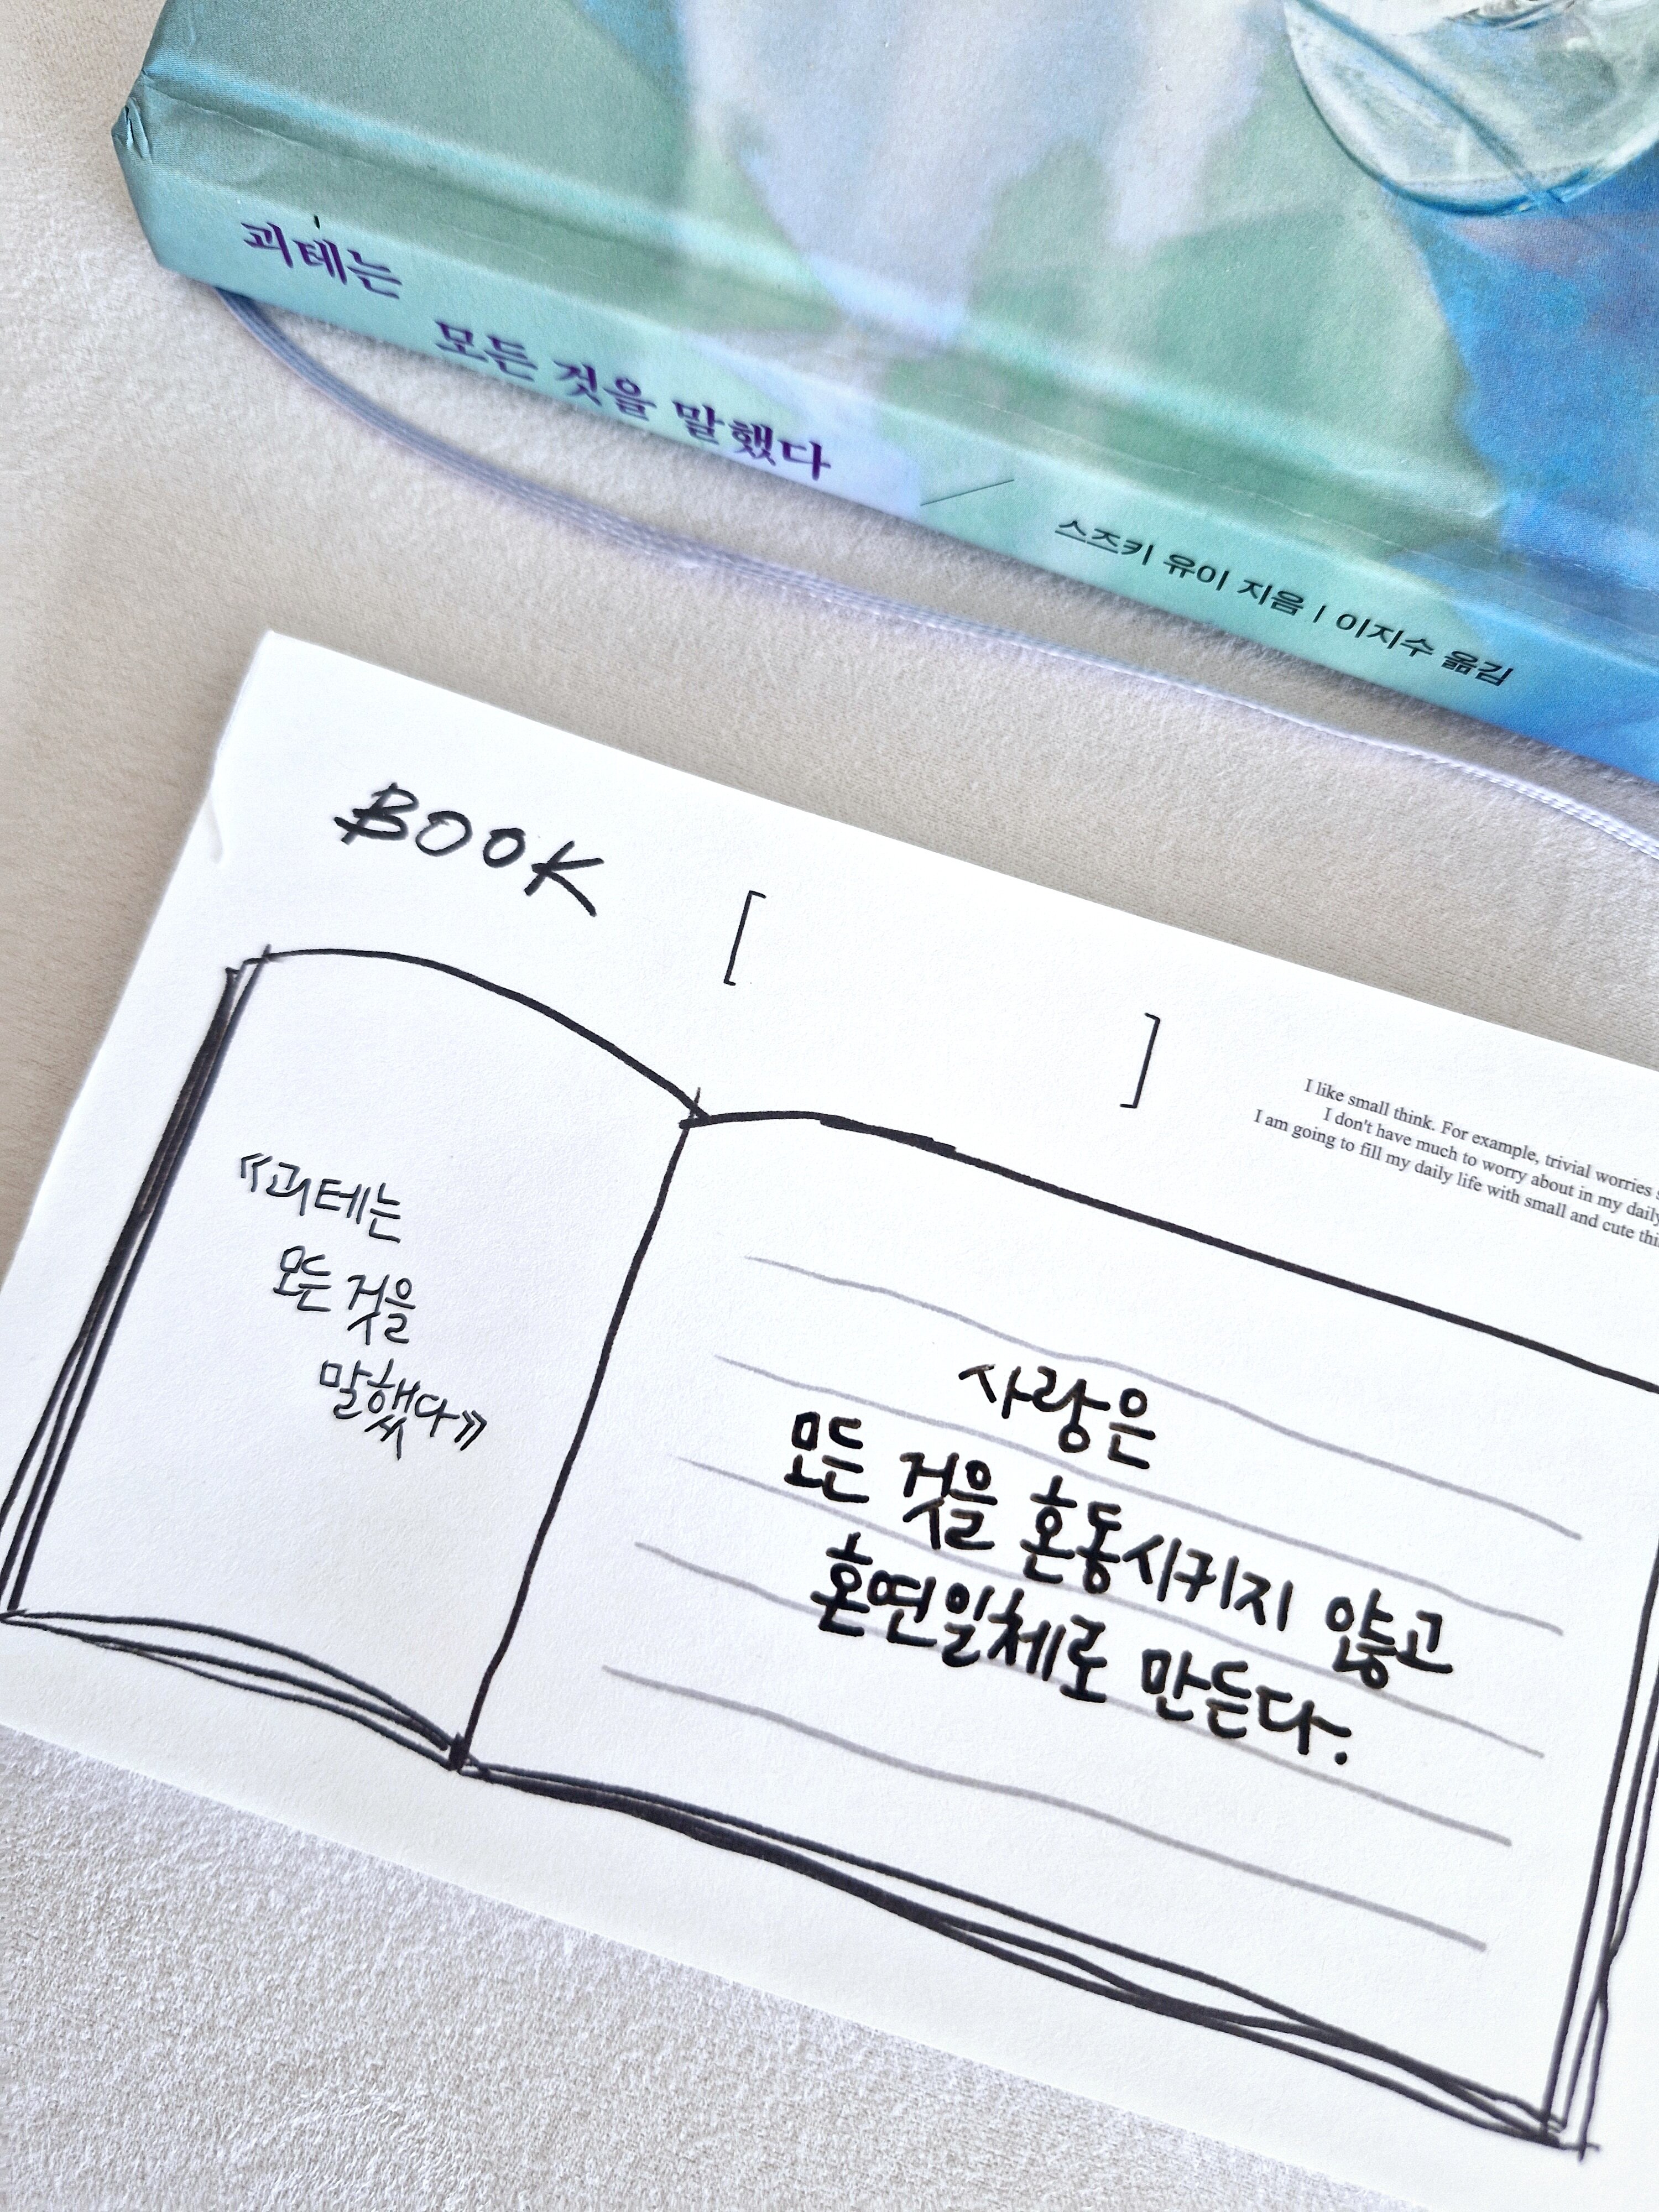 괴테는
모든 것을 말했다
스즈키 유이 지음 | 이지수 옮김
BOOK
[ ]
I like small think. For example, trivial worries
I don't have much to worry about in my daily
I am going to fill my daily life with small and cute
《괴테는
모든 것을
말했다》
사랑은
모든 것을 혼동시키지 않고
혼연일체로 만든다.